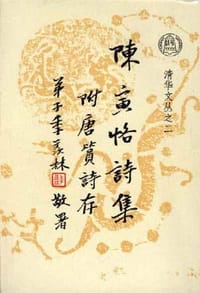 清华文丛之二
陳寅恪詩集
附唐篔詩存
弟子季羨林
敬署